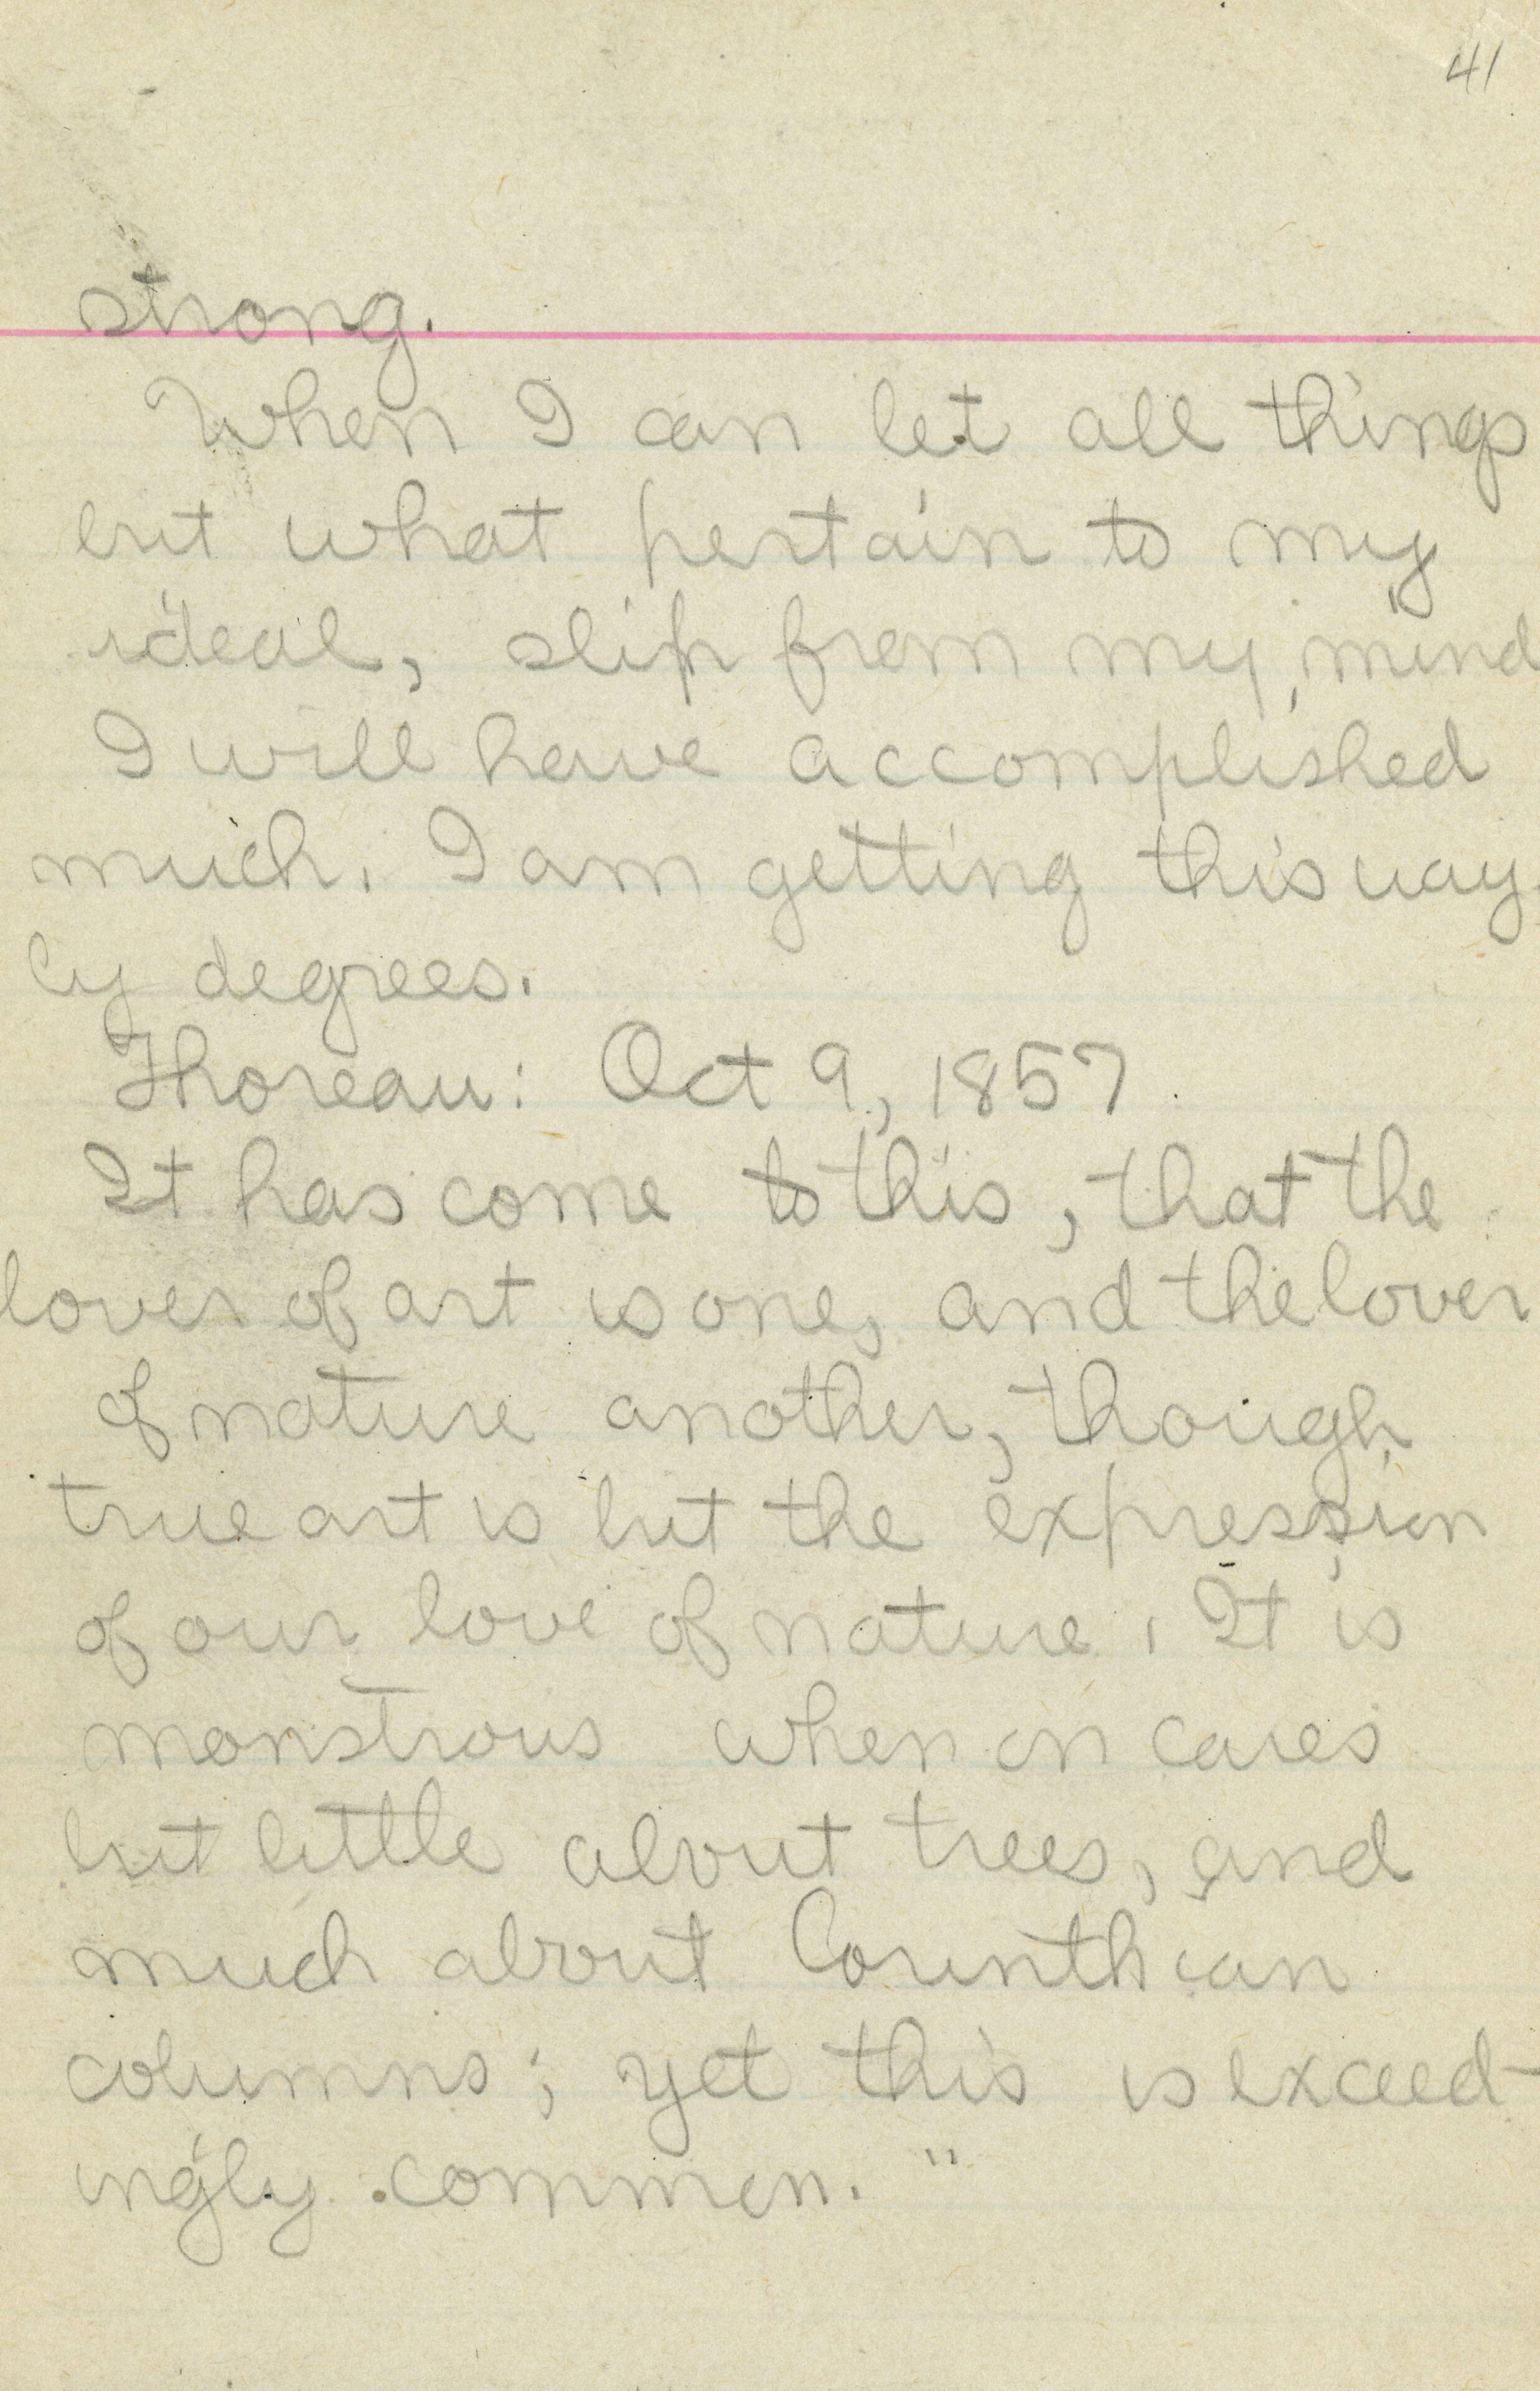 41
strong.
When I can let all things
but what pertain to my
ideal, slip from my mind
I will have accomplished
much. I am getting this way
by degrees.
Thoreau: Oct 9, 1857.
It has come to this, that the
lover of art is one, and the lover
of nature another, though
true art is but the expression
of our love of nature. It is
monstrous when on cares
but little about trees, and
much about Corinthian
columns; yet this is exceed-
ingly common."